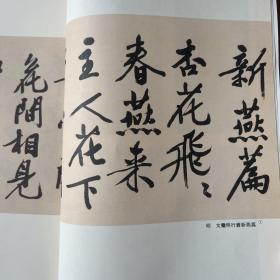 新燕篇
杏花飛〻
春燕来
主人花下
花間相見
明 文徵明行書新燕篇①